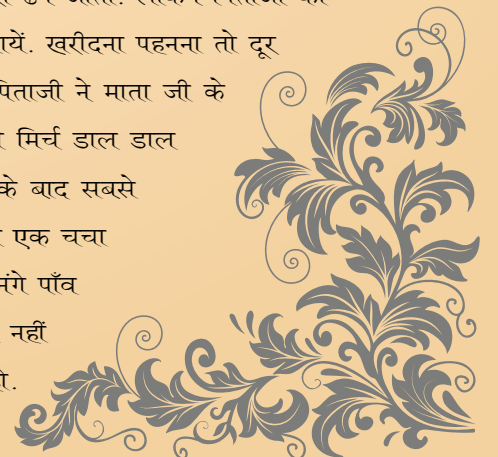 यें. खरीदना पहनना तो दूर
पिताजी ने माता जी के
मिर्च डाल डाल
के बाद सबसे
एक चचा
पाँव
नहीं